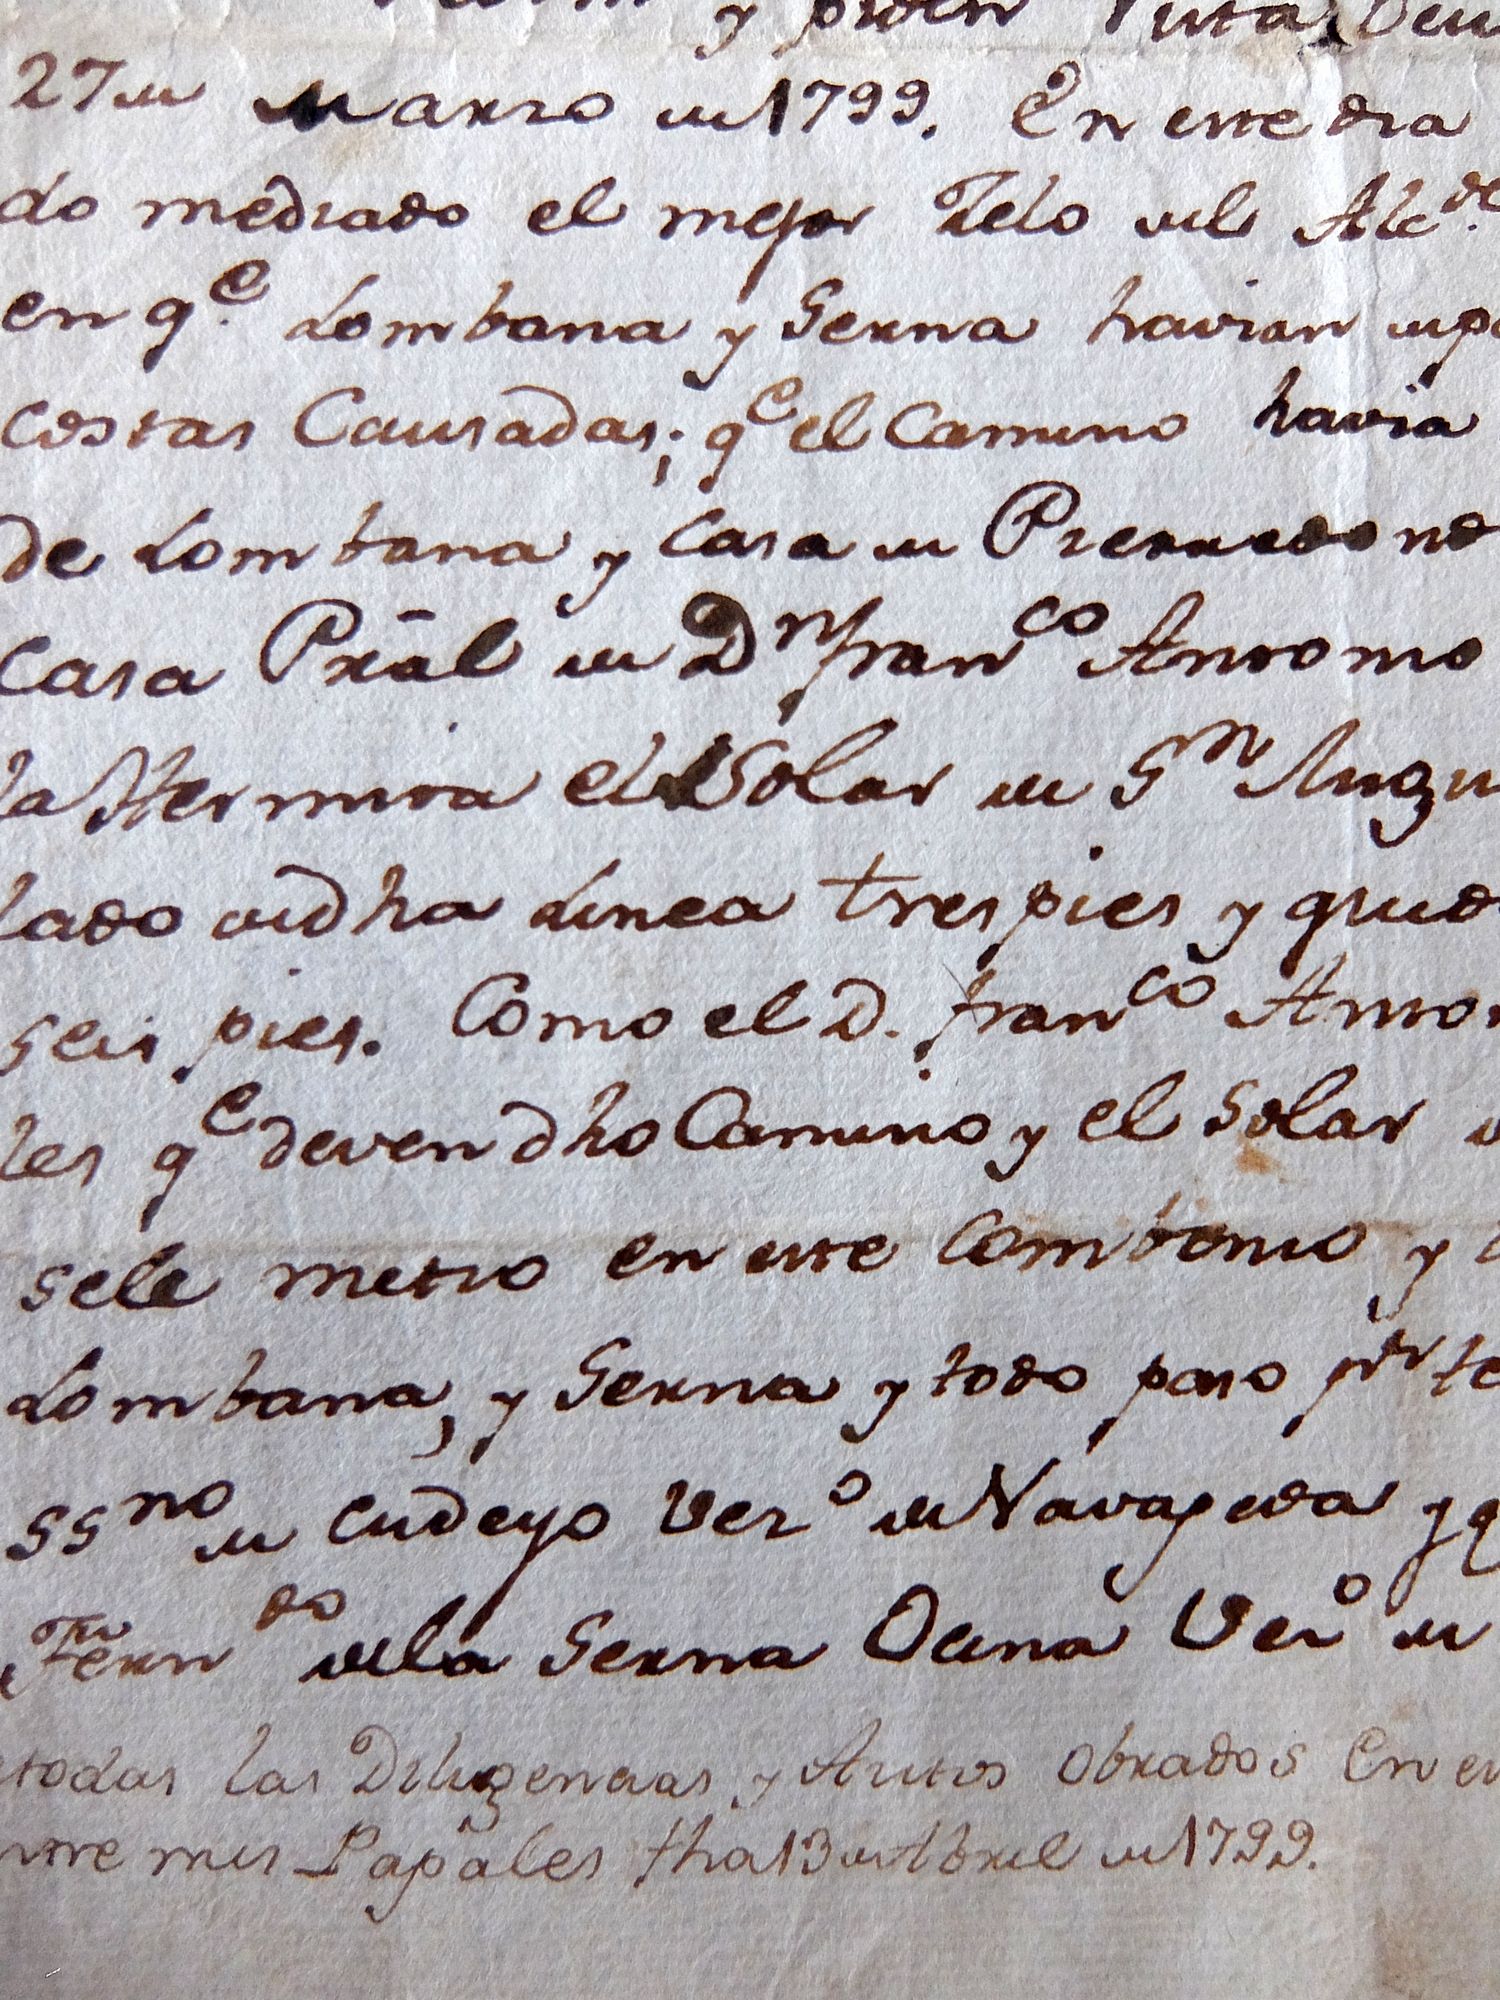 y piden Vista
27 de Marzo de 1799. En este dia
do mediado el mejor Zelo del Alc.de
en q.e Lombana y Serna havian
costas Causadas; q.e el Camino havia
de Lombana y Casa de Prermedo no
Casa Prãl de Dn franco Antonio
la Hermita el Solar de Sn
lado de dha Linea tres pies y
seis pies. Como el D. franco
les q.e deven dho Camino y el Solar
sele metio en este Combenio y
Lombana, y Serna y todo paso pr
ssno de Cudeyo Vezo de Navajeda y
Ferndo de la Serna Ocina Vezo de
todas las Diligencias y Autos Obrados En
mis Papales fha 13 de Abril de 1799.